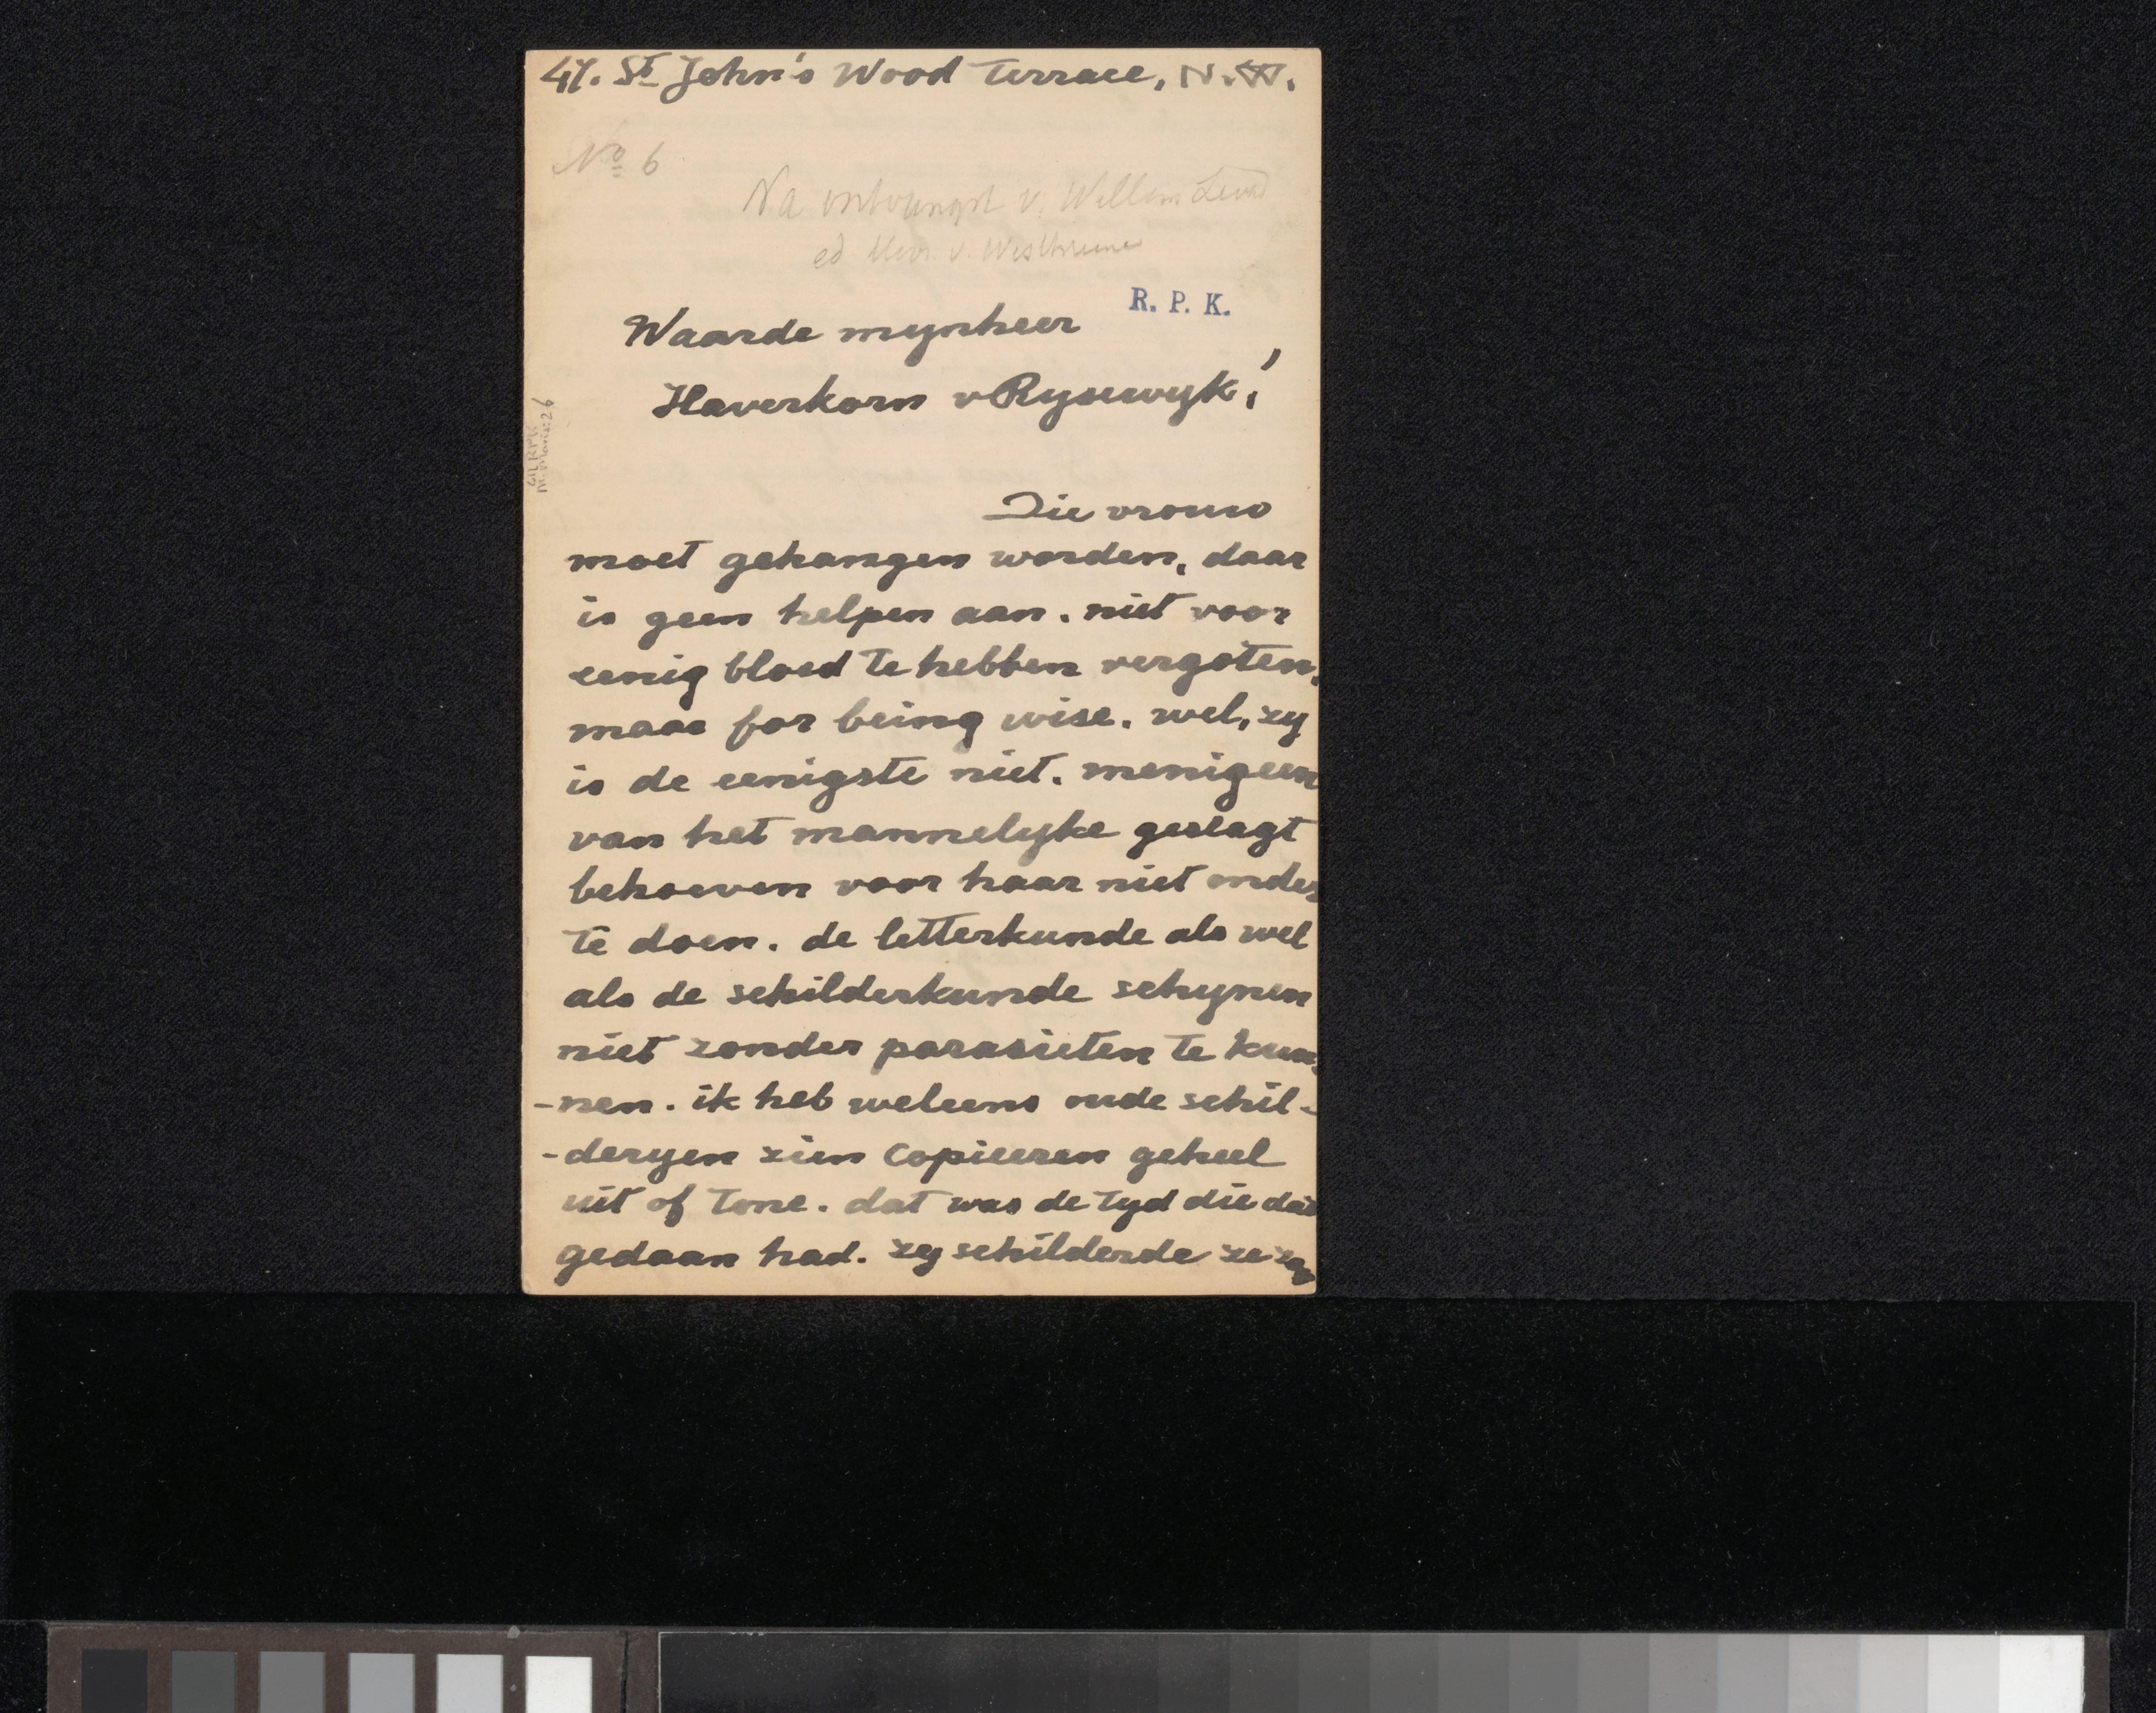 47. St John's Wood Terrace, N.W.
No 6
Na ontvangst v. Willem
ed v.
R. P. K.
Waarde mynheer
Haverkorn v Rysewyk!
Die vrouw
moet gehangen worden, daar
is geen helpen aan. niet voor
eenig bloed te hebben vergoten,
maar for being wise. wel, zy
is de eenigste niet. menigeen
van het mannelyke geslagt
behoeven voor haar niet onder
te doen. de letterkunde als wel
als de schilderkunde schynen
niet zonder parasieten te kun-
-nen. ik heb weleens oude schil-
-deryen zien copieeren geheel
uit of tone. dat was de tyd die dat
gedaan had. zy schilderde ze zoo